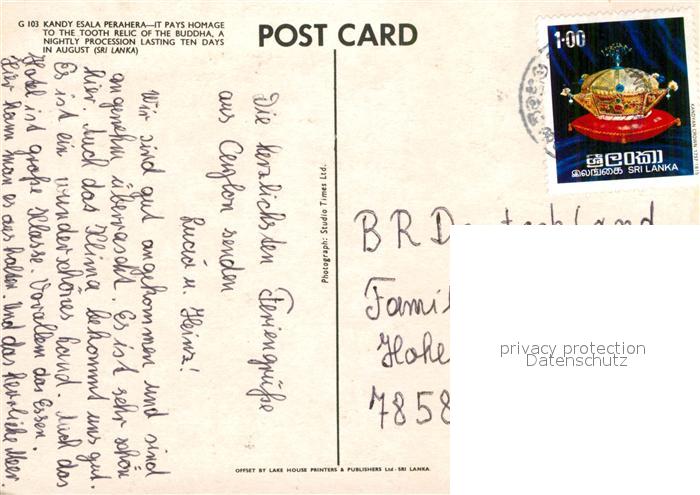 G 103 KANDY ESALA PERAHERA—IT PAYS HOMAGE
TO THE TOOTH RELIC OF THE BUDDHA, A
NIGHTLY PROCESSION LASTING TEN DAYS
IN AUGUST (SRI LANKA)
POST CARD
1·00
ශ්‍රී ලංකා
இலங்கை SRI LANKA
Die herzlichsten Feriengrüße
aus Ceylon senden
Lucia u. Heinz!
Wir sind gut angekommen und sind
angenehm überrascht. Es ist sehr schön
hier. Auch das Klima bekommt uns gut.
Es ist ein wunderschönes Land. Auch das
Hotel ist große Klasse. Vorallem das Essen.
Hier kann man es aus halten. Und das herrliche Meer.
Photograph: Studio Times Ltd.
BR Deutschland
Famil
Hohe
7858
privacy protection
Datenschutz
OFFSET BY LAKE HOUSE PRINTERS & PUBLISHERS Ltd - SRI LANKA.